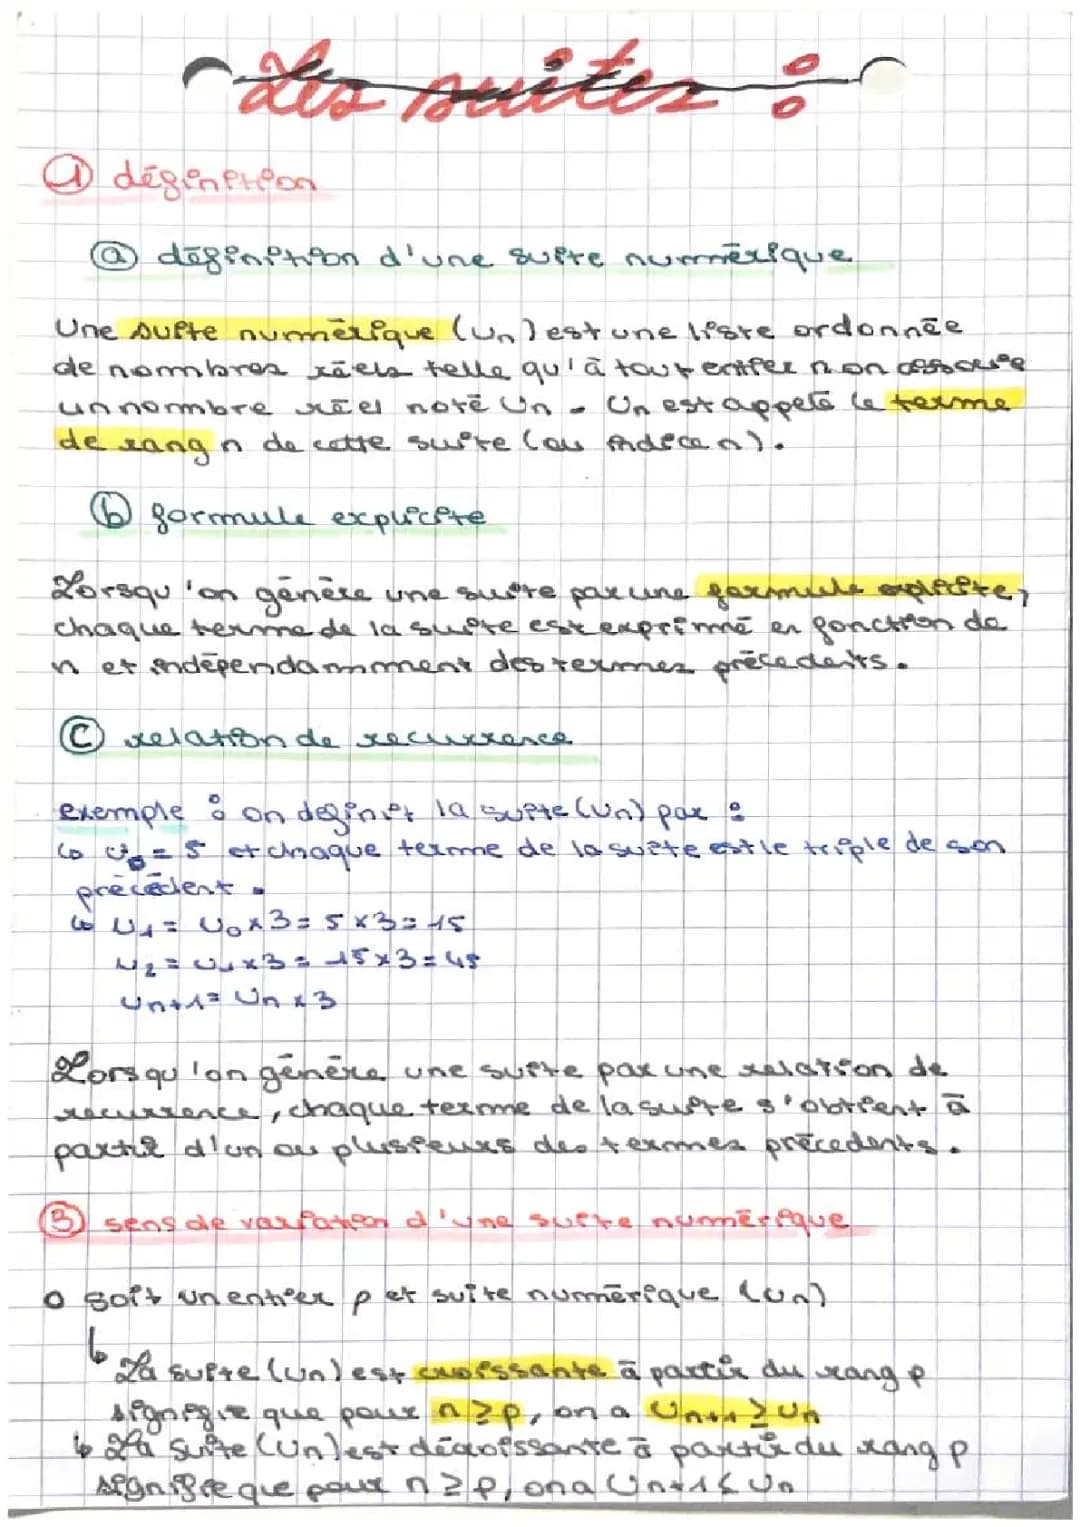 Les suites :
① définition
ⓐ définition d'une suite numérique
Une suite numérique (Un) est une liste ordonnée
de nombres réels telle qu'à tout entier n on associe
un nombre réel noté Un. Un est appelé le terme
de rang n de cette suite (ou indice n).
ⓑ formule explicite
Lorsqu'on génère une suite par une formule explicite,
chaque terme de la suite est exprimé en fonction de
n et indépendamment des termes précedents.
ⓒ relation de recurrence
exemple : on definit la suite (Un) par :
↳ U₀ = 5 et chaque terme de la suite est le triple de son
précédent.
↳ U₁ = U₀ x 3 = 5 x 3 = 15
U₂ = U₁ x 3 = 15 x 3 = 45
Un+1 = Un x 3
Lorsqu'on génère une suite par une relation de
recurrence, chaque terme de la suite s'obtient à
partir d'un ou plusieurs des termes précedents.
③ sens de variation d'une suite numérique
o soit un entier p et suite numérique (un)
↳ La suite (un) est croissante à partir du rang p
signifie que pour n ≥ p, on a Un+1 ≥ Un
↳ La suite (Un) est décroissante à partir du rang p
signifie que pour n ≥ p, on a Un+1 ≤ Un